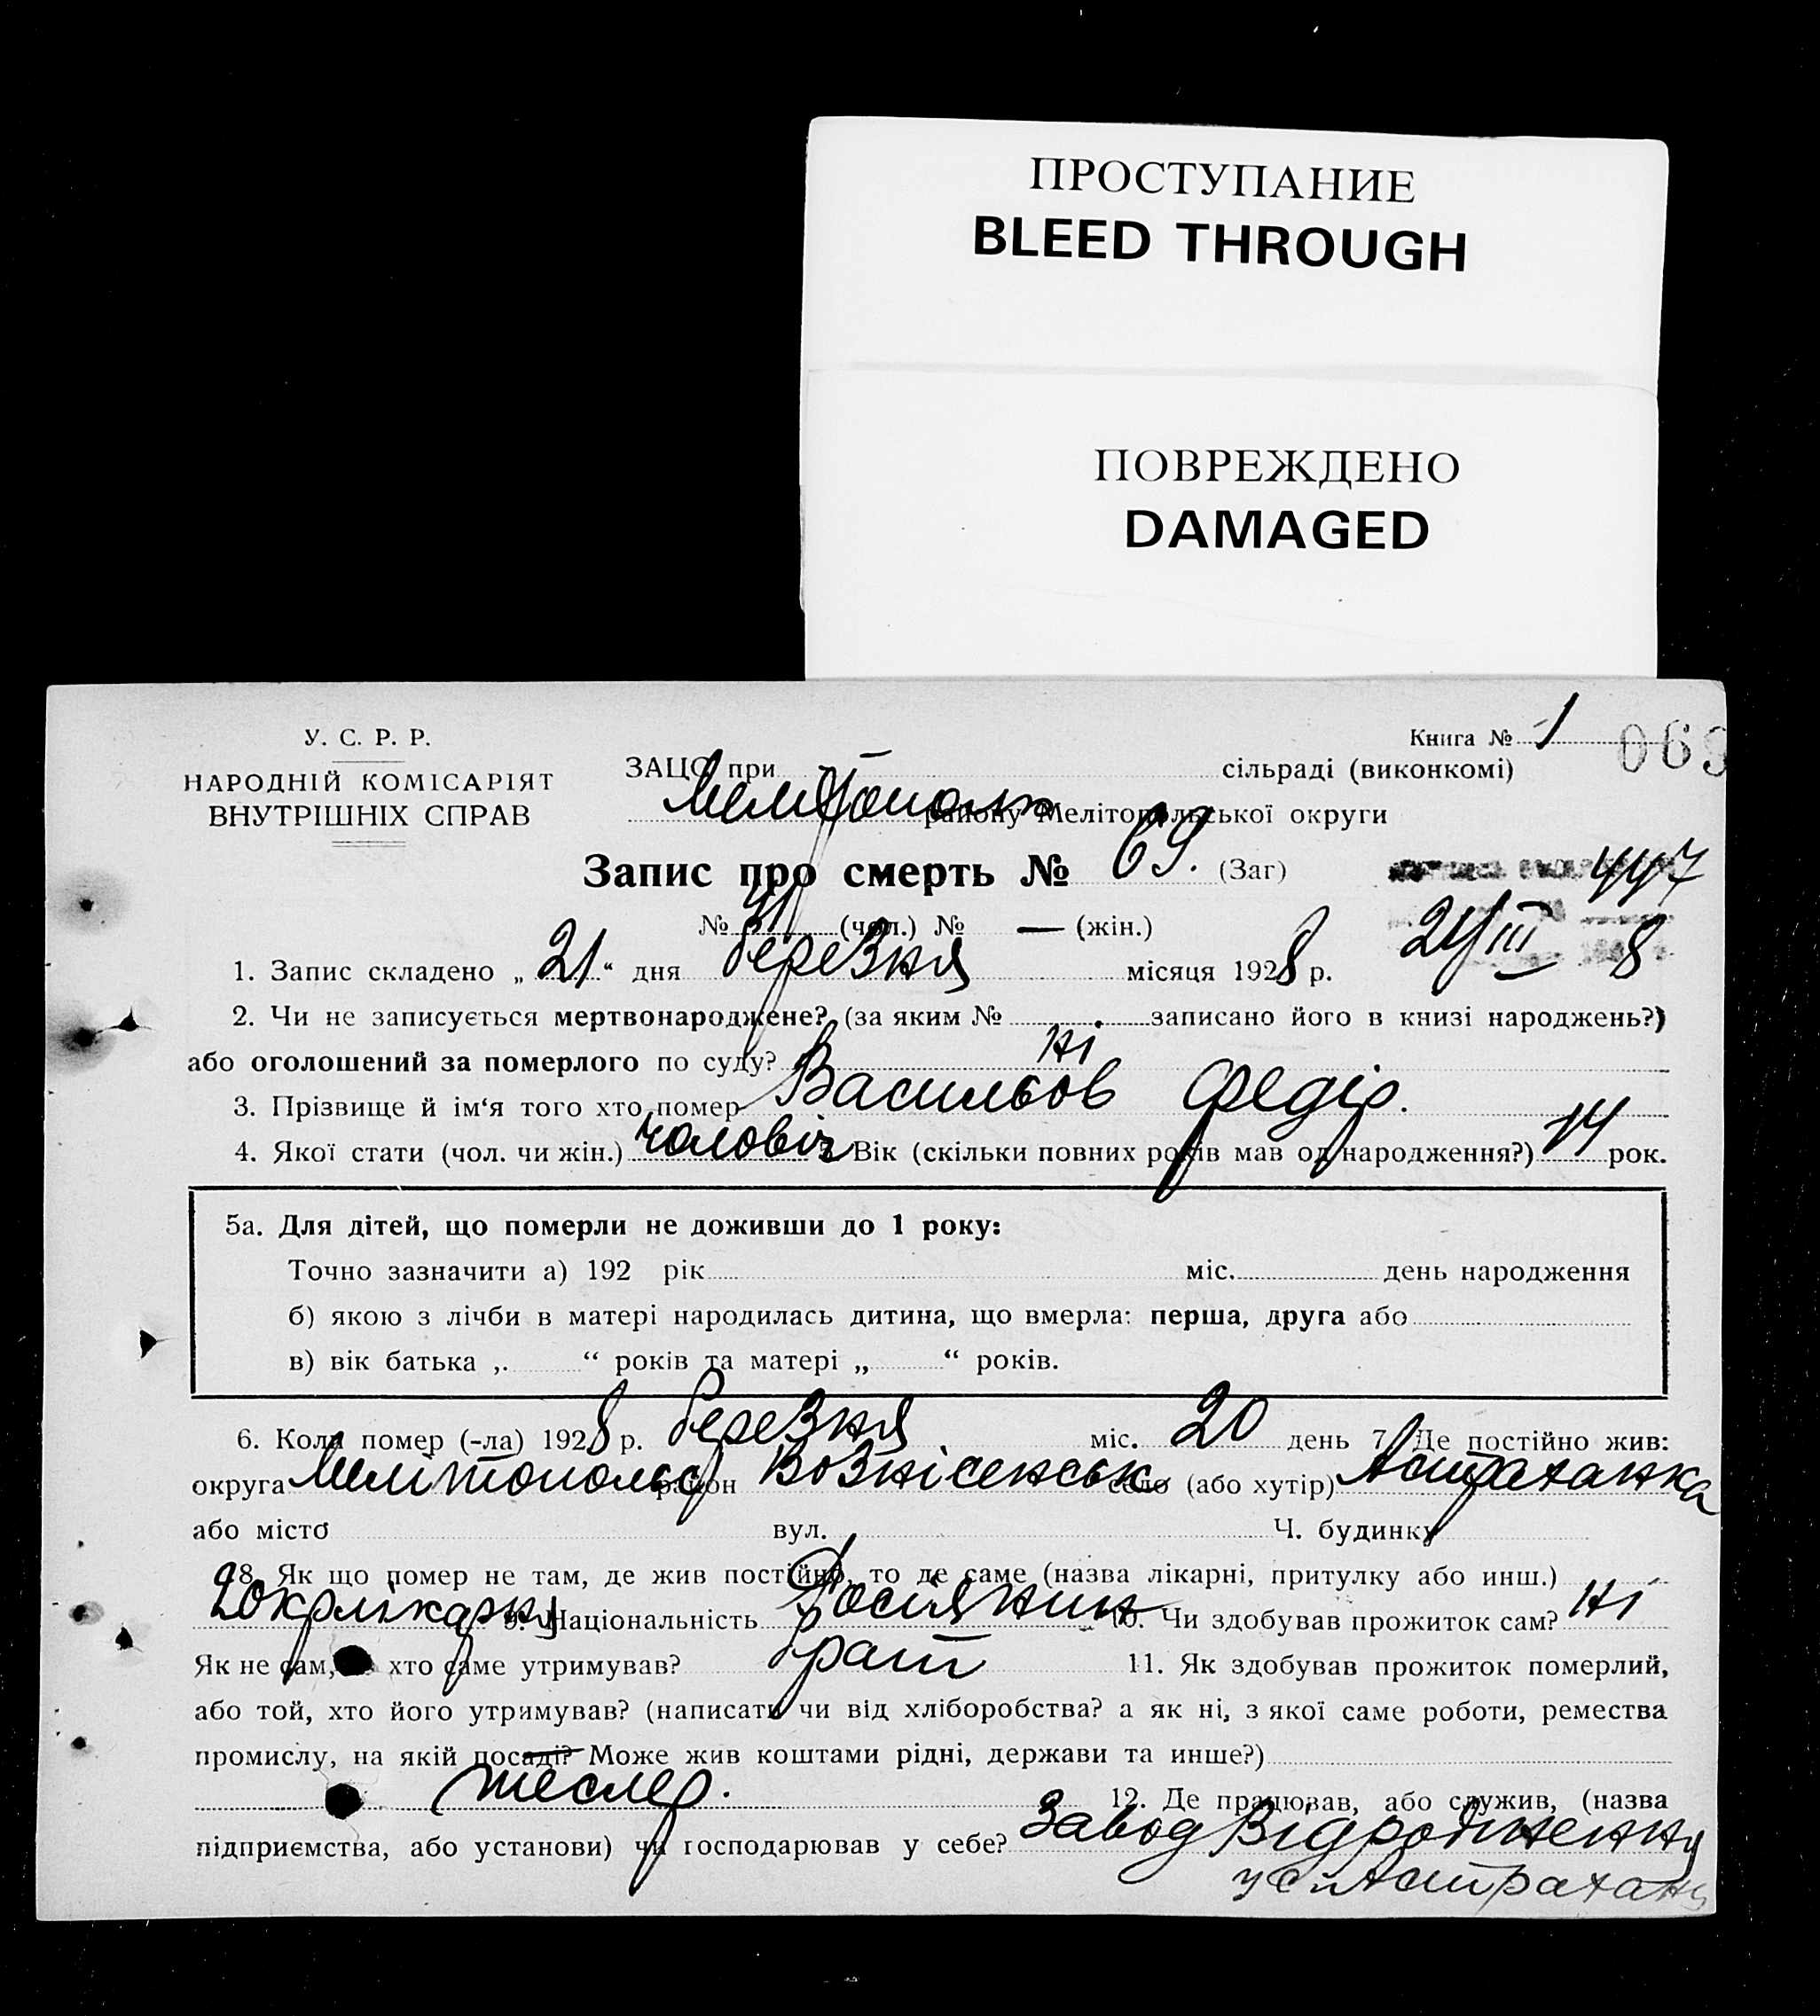 ПРОСТУПАНИЕ
BLEED THROUGH
ПОВРЕЖДЕНО
DAMAGED
У. С. Р. Р.
НАРОДНІЙ КОМІСАРІЯТ
ВНУТРІШНІХ СПРАВ
Книга № 1
ЗАЦС при сільраді (виконкомі)
району Мелітопольської округи
Запис про смерть № 69. (Заг)
447
№ 31 (чол.) № — (жін.)
1. Запис складено „21“ дня березня місяця 1928 р.
2. Чи не записується мертвонароджене? (за яким № записано його в книзі народжень?)
або оголошений за померлого по суду? Ні
3. Прізвище й ім'я того хто помер Васильов Федір.
4. Якої стати (чол. чи жін.) чоловіч Вік (скільки повних років мав од народження?) 14 рок.
5а. Для дітей, що померли не доживши до 1 року:
Точно зазначити а) 192 рік міс. день народження
б) якою з лічби в матері народилась дитина, що вмерла: перша, друга або
в) вік батька „ “ років та матері „ “ років.
6. Коли помер (-ла) 1928 р. березня міс. 20 день 7. Де постійно жив:
округа Мелітополь район Вознісенськ село (або хутір) Астраханка
або місто вул. Ч. будинку
8. Як що помер не там, де жив постійно, то де саме (назва лікарні, притулку або инш.)
9. Національність Росіянин 10. Чи здобував прожиток сам? Ні
Як не сам, хто саме утримував? брат 11. Як здобував прожиток померлий,
або той, хто його утримував? (написати чи від хліборобства? а як ні, з якої саме роботи, ремества
промислу, на якій посаді? Може жив коштами рідні, держави та инше?)
тесляр. 12. Де працював, або служив, (назва
підприємства, або установи) чи господарював у себе? Завод Відродження